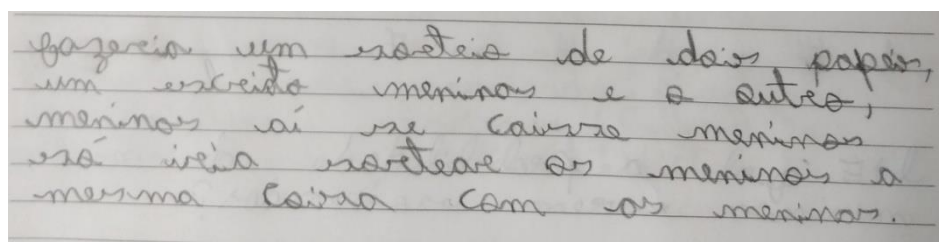 fazeria um sorteio de dois papéis,
um escrito meninas e o outro,
meninos aí se caisse meninos
só iria sortear os meninois a
mesma coisa com as meninas.